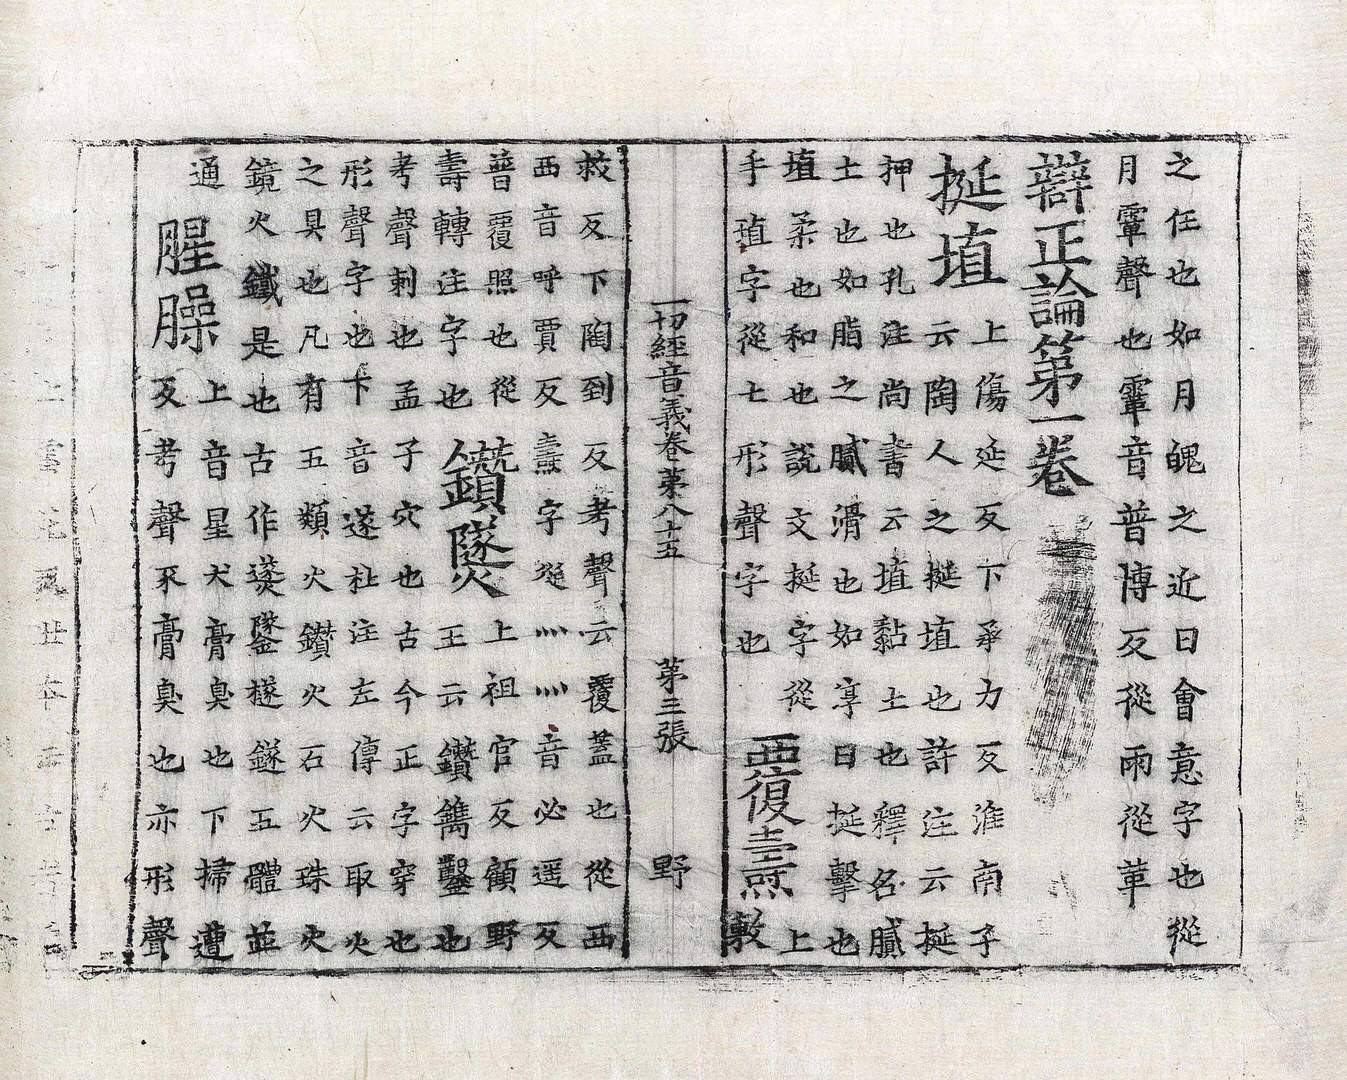 之任也如月魄之近日會意字也從
月霸聲也霸音普博反從雨從革
辯正論第一卷
挻埴
上傷延反下承力反淮南子
云陶人之挻埴也許注云挻
押也孔注尚書云埴黏土也釋名膩
土也如脂之膩滑也如淳曰挻擊也
埴柔也和也說文挻字從
手埴字從土形聲字也
覆燾
上
敷
一切經音義卷第八十五
第三張
野
救反下陶到反考聲云覆蓋也從西
西音呼賈反燾字從灬灬音必遥反
普覆照也從
壽轉注字也
鑽燧
上祖官反顧野
王云鑽鐫鑿也
考聲刺也孟子穴也古今正字穿也
形聲字也下音遂杜注左傳云取火
之具也凡有五類火鑽火石火珠火
鏡火鐵是也古作
鐩五體並
通
腥臊
上音星犬膏臭也下掃遭
反考聲豕膏臭也亦形聲